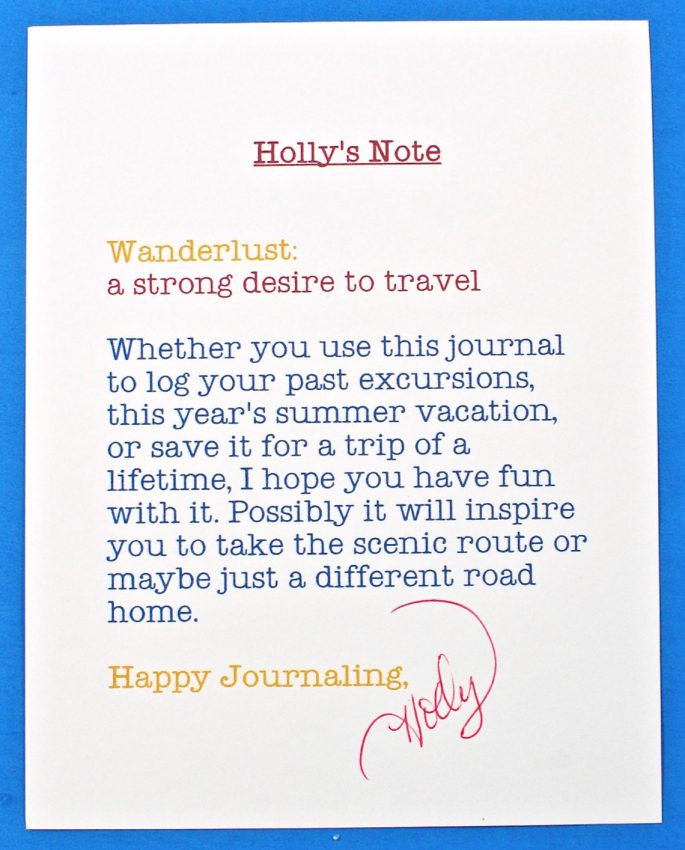 Holly's Note
Wanderlust:
a strong desire to travel
Whether you use this journal
to log your past excursions,
this year's summer vacation,
or save it for a trip of a
lifetime, I hope you have fun
with it. Possibly it will inspire
you to take the scenic route or
maybe just a different road
home.
Happy Journaling,
Holly